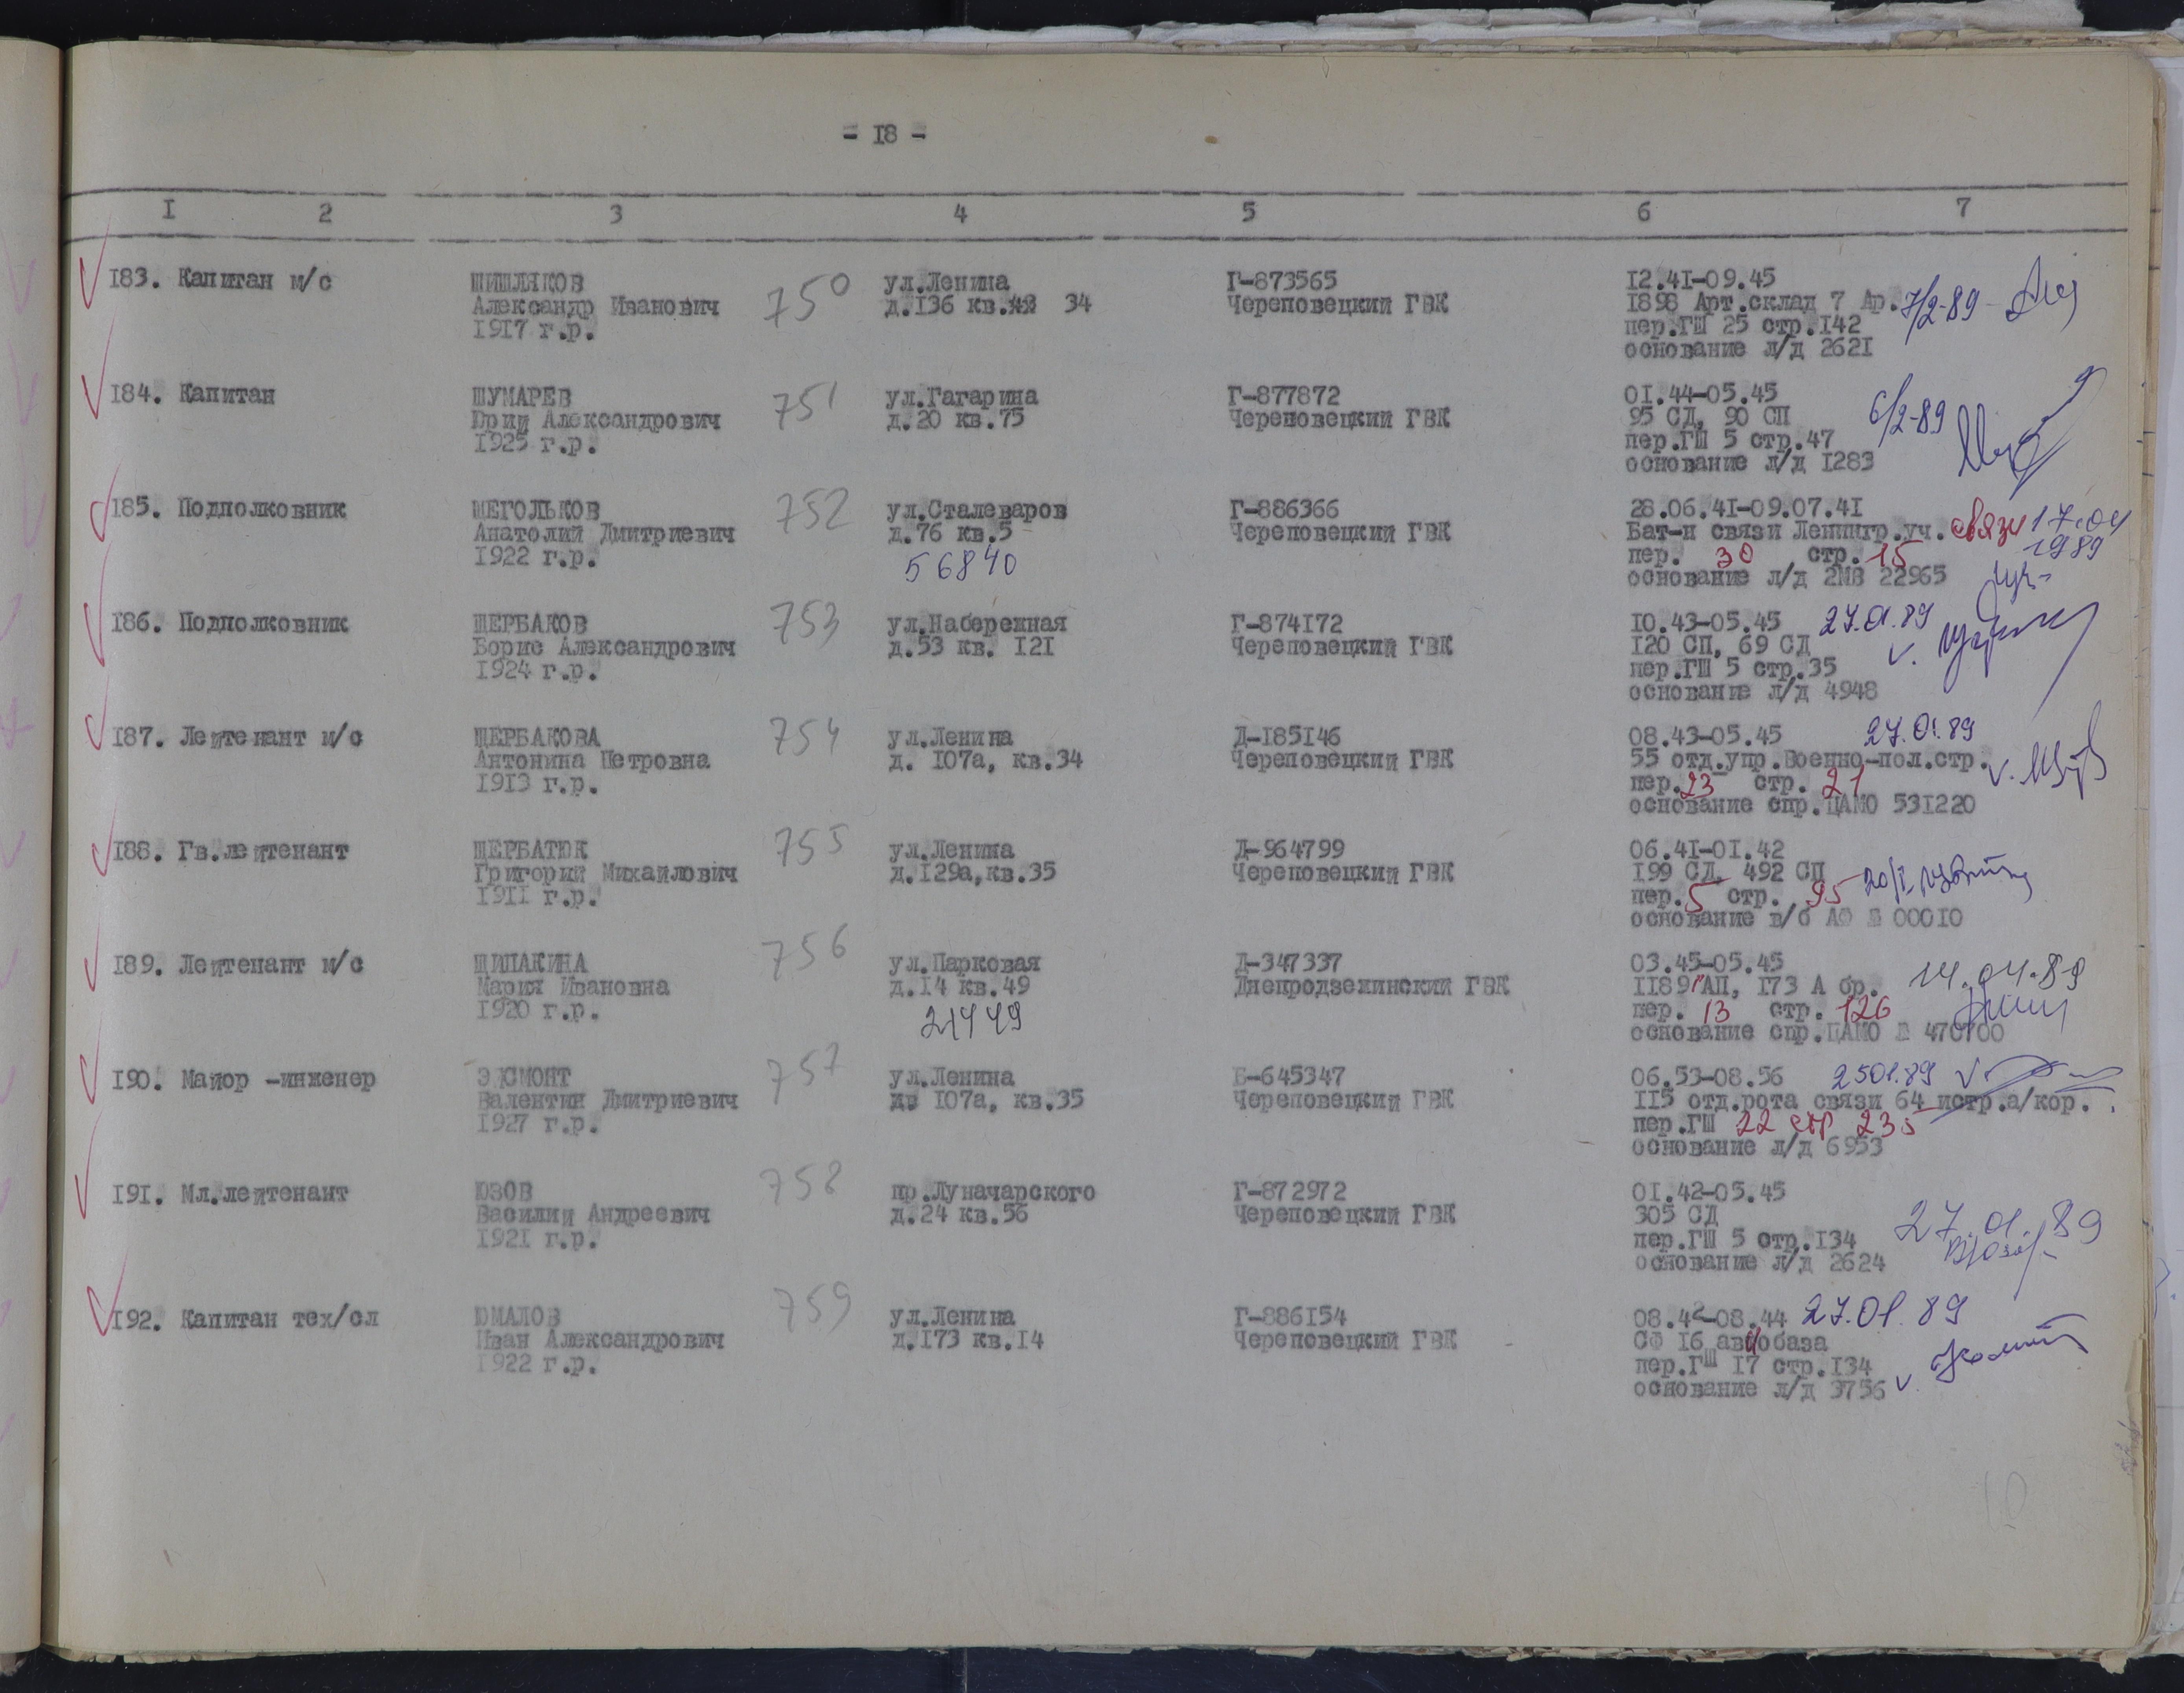 - 18 -
1 2 3 4 5 6 7
183. Капитан м/с
ШИШЛЯКОВ
Александр Иванович
1917 г.р.
750
ул.Ленина
д.136 кв. 34
Г-873565
Череповецкий ГВК
12.41-09.45
1898 Арт.склад 7 Ар.
пер.ГШ 25 стр.142
основание л/д 2621
7/2-89
184. Капитан
ШУМАРЕВ
Юрий Александрович
1925 г.р.
751
ул.Гагарина
д.20 кв.75
Г-877872
Череповецкий ГВК
01.44-05.45
95 СД, 90 СП
пер.ГШ 5 стр.47
основание л/д 1283
6/2-89
185. Подполковник
ЩЕГОЛЬКОВ
Анатолий Дмитриевич
1922 г.р.
752
ул.Сталеваров
д.76 кв.5
56840
Г-886366
Череповецкий ГВК
28.06.41-09.07.41
Бат-н связи Ленингр.уч. связи
пер. 30 стр. 15
основание л/д 2МВ 22965
17.04
1989
186. Подполковник
ЩЕРБАКОВ
Борис Александрович
1924 г.р.
753
ул.Набережная
д.53 кв. 121
Г-874172
Череповецкий ГВК
10.43-05.45
120 СП, 69 СД
пер.ГШ 5 стр.35
основание л/д 4948
27.01.89
187. Лейтенант м/с
ЩЕРБАКОВА
Антонина Петровна
1913 г.р.
754
ул.Ленина
д. 107а, кв.34
Д-185146
Череповецкий ГВК
08.43-05.45
55 отд.упр.Военно-пол.стр.
пер.23 стр. 21
основание спр.ЦАМО 531220
27.01.89
188. Гв.лейтенант
ЩЕРБАТЮК
Григорий Михайлович
1911 г.р.
755
ул.Ленина
д.129а,кв.35
Д-964799
Череповецкий ГВК
06.41-01.42
199 СД, 492 СП
пер.5 стр. 95
основание в/б АФ № 00010
20/I
189. Лейтенант м/с
ЩИПАКИНА
Мария Ивановна
1920 г.р.
756
ул.Парковая
д.14 кв.49
21449
Д-347337
Днепродзежинский ГВК
03.45-05.45
1189 АП, 173 А бр.
пер. 13 стр. 126
основание спр.ЦАМО № 470700
14.04.89
190. Майор -инженер
ЭЙСМОНТ
Валентин Дмитриевич
1927 г.р.
757
ул.Ленина
д. 107а, кв.35
Б-645347
Череповецкий ГВК
06.53-08.56
115 отд.рота связи 64 истр.а/кор.
пер.ГШ 22 стр 235
основание л/д 6953
2501.89
191. Мл.лейтенант
ЮЗОВ
Василий Андреевич
1921 г.р.
758
пр.Луначарского
д.24 кв.56
Г-872972
Череповецкий ГВК
01.42-05.45
305 СД
пер.ГШ 5 стр.134
основание л/д 2624
27.01.89
192. Капитан тех/сл
ЮМАЛОВ
Иван Александрович
1922 г.р.
759
ул.Ленина
д.173 кв.14
Г-886154
Череповецкий ГВК
08.42-08.44
СФ 16 авиобаза
пер.ГШ 17 стр.134
основание л/д 3756
27.01.89